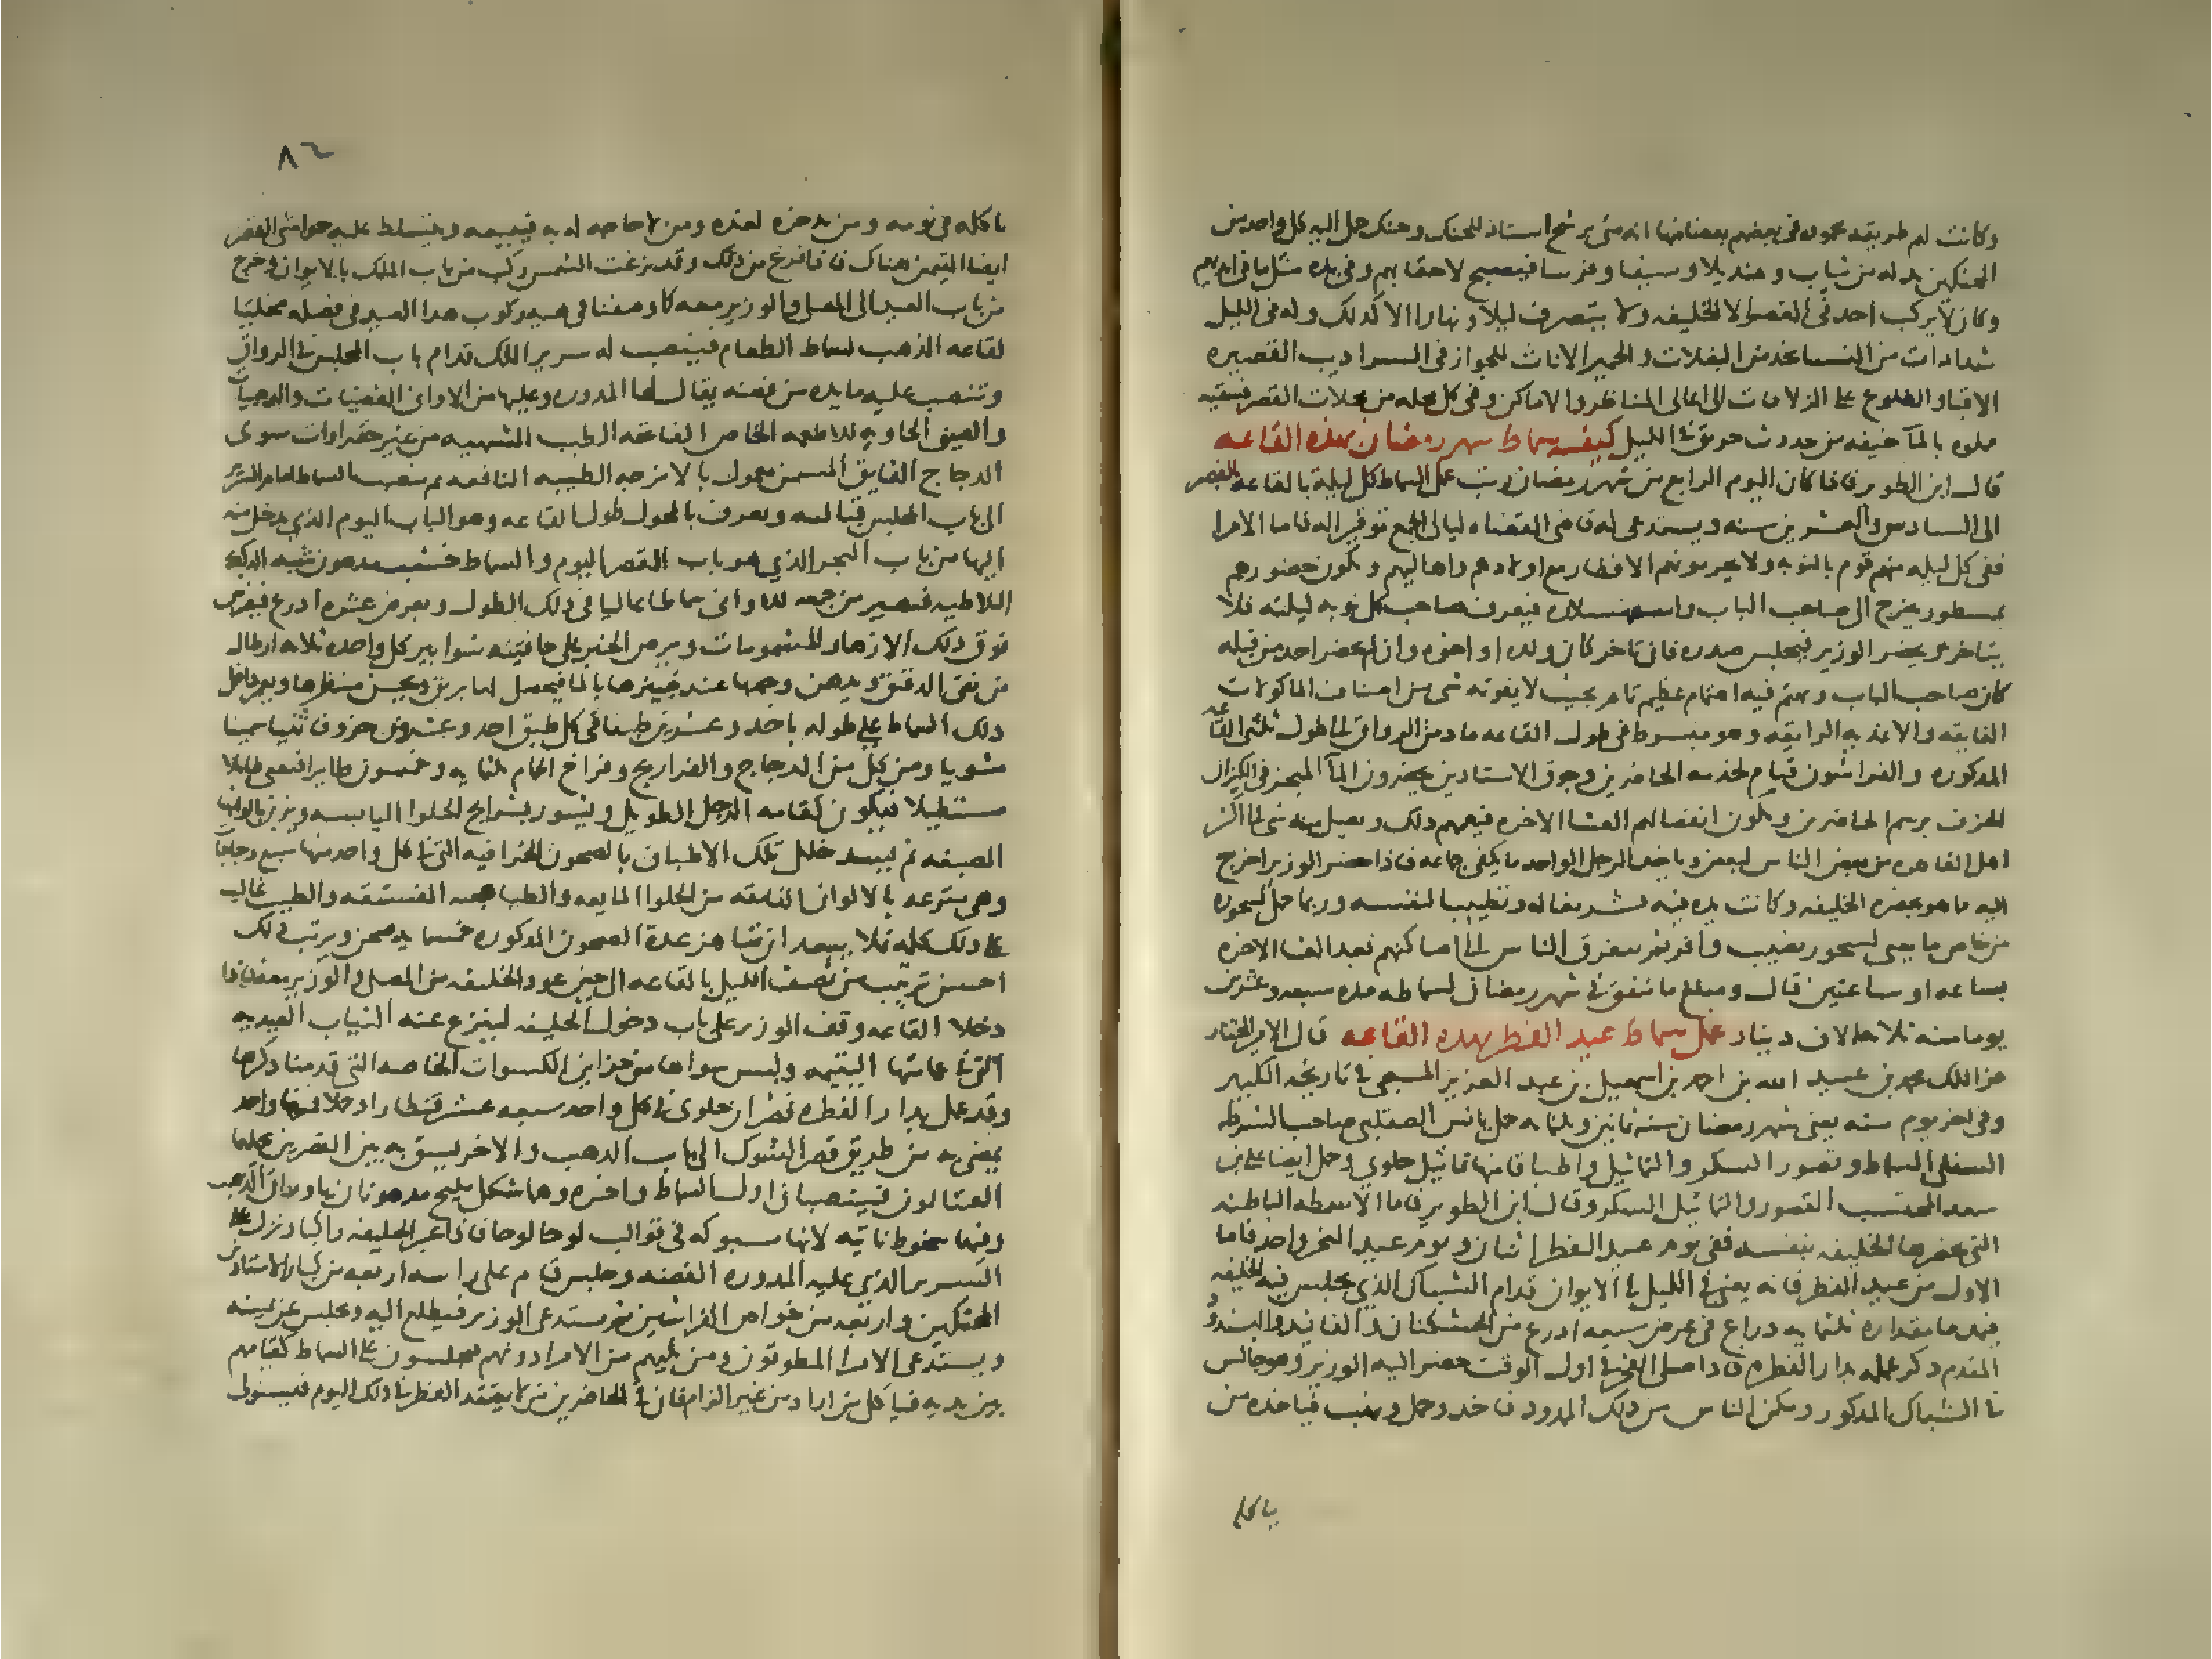 وكانت لهم طريقه محموده في بعضهم بعضا منها انه متى ترشح استاذ للحنك وحنك حمل اليه كل واحد من
المحنكين بدله من ثياب ومنديلا وسيفا وفرسا فيصبح لاحقا بهم وفي يده مثل ما في ايديهم
وكان لا يركب احد في القصر الا الخليفه ولا ينصرف ليلا ونهارا الا كذلك وله في الليل
شدادات من النسا يخدمن البغلات والحمير الاناث للجواز في السراديب القصيره
الاقبا والطلوع على الزلاقات الى اعالي المناظر والاماكن وفي كل محله من محلات القصر فسقيه
مملوه بالمآ خيفه من حدوث حريق في الليل كيفيه سماط شهر رمضان بهذه القاعه
قال ابن الطوير فاذا كان اليوم الرابع من شهر رمضان رتب عمل السماط كل ليلة بالقاعه بالقصر
الى السادس والعشرين منه ويستدعى له قاضي القضاه ليالي الجمع توقيرا له فاما الامرا
ففي كل ليله منهم قوم بالنوبه ولا يحرمونهم الافطار مع اولادهم واهاليهم ويكون حضورهم
بمسطور يخرج الى صاحب الباب واسفهسلار فيعرف صاحب كل نوبه ليلته فلا
يتاخر ويحضر الوزير فيجلس صدره فان تاخر كان ولده او اخوه وان لم يحضر احد من قبله
كان صاحب الباب ويهتم فيه اهتمام عظيم تام بحيث لا يفوته شي من اصناف الماكولات
الفايقه والاغذيه الرايقه وهو مبسوط في طول القاعه ماد من الرواق الى طول ثلثي القاعه
المذكوره والفراشون قيام لخدمه الحاضرين وحواشي الاستادين يحضرون المآ المبخر في الكيزان
الخزف برسم الحاضرين ويكون انفصالهم العشا الاخره فيعمهم ذلك ويصل منه شي الى اكثر
اهل القاهره من بعض الناس لبعض وياخذ الرجل الواحد ما يكفي جماعه فاذا حضر الوزير اخرج
اليه ما هو بحضره الخليفه وكانت يده فيه تشريفا له وتطييبا لنفسه وربما حمل لسحوره
من خاص ما يعبى لسحور نصيب وافر ثم يتفرق الناس الى اماكنهم بعد العشا الاخره
بساعه او ساعتين قال ومبلغ ما ينفق في شهر رمضان لسماطه مده سبعه وعشرين
يوما منه ثلاثه الاف دينار عمل سماط عيد الفطر بهذه القاعه قال الامير المختار
عز الملك محمد بن عبيد الله بن احمد بن اسمعيل بن عبد العزيز المسبحي في تاريخه الكبير
وفي اخر يوم منه يعني شهر رمضان سنه ثمانين وثلثمايه حمل يانس الصقلبي صاحب الشرطه
السفلى السماط وقصور السكر والتماثيل واطباقا منها تماثيل حلوى وحمل ايضا علي بن
سعد المحتسب القصور والتماثيل السكر وقال ابن الطوير فاما الاسمطه الباطنه
التي يحضرها الخليفه بنفسه ففي يوم عيد الفطر اثنان ويوم عيد النحر واحد فاما
الاول من عيد الفطر فانه يعبى في الليل في الايوان قدام الشباك الذي يجلس فيه الخليفه
فيمد ما مقداره ثلثمايه ذراع في عرض سبعه اذرع من الخشكنان والفانيذ والبسندود
المقدم ذكر عمله بدار الفطره فاذا صلى الفجر في اول الوقت حضر اليه الوزير وهو جالس
في الشباك المذكور ومكن الناس من ذلك الممدود فاخذ وحمل ونهب فياخذه من
ياكله
٨٢
ياكله في يومه ومن يدخره لغده ومن لا حاجه له به فيبيعه ويتسلط عليه حواشي القصر
ايضا المقيمين هناك فاذا فرغ من ذلك وقد بزغت الشمس ركب من باب الملك بالايوان وخرج
من باب العيد الى المصلى والوزير معه كما وصفنا في هييه ركوب هذا العيد في فصله مخليا
لقاعه الذهب لسماط الطعام فينصب له سرير الملك قدام باب المجلس في الرواق
وتنصب عليه مايده من فضه يقال لها المدوره وعليها من الاواني الفضيات والذهبيات
والصيني الحاويه للاطعمه الخاص الفايحه الطيب الشهيه من غير خضراوات سوى
الدجاج الفايق المسمن معمول بالامزجه الطيبه النافعه ثم ينصب السماط امام السرير
الى باب المجلس قبالته ويعرف بالمحول طول القاعه وهو الباب اليوم الذي يدخل منه
اليها من باب البحر الذي هو باب القصر اليوم والسماط خشب مدهون شبه الدكك
اللاطيه فيصير من جمعه للاواني سماطا عاليا في ذلك الطول وبعرض عشره اذرع فيفرش
فوق ذلك الازهار المشمومات ويرص الخبز على حافتيه شوابير كل واحده ثلاثه ارطال
من نقي الدقيق ويدهن وجهها عند خبيزها بالما فيحصل لها بريق ويحسن منظرها ويعمر داخل
ذلك السماط على طوله باحد وعشرين طبقا في كل طبق احد وعشرون خروفا ثنيا سمينا
مشويا ومن كل من الدجاج والفراريج وفراخ الحمام ثلثمايه وخمسون طايرا فيبقى طايلا
مستطيلا فيكون كقامه الرجل الطويل ويسور بشرايح الحلوا اليابسه ويزين بالوانها
المصبغه ثم يسد خلل تلك الاطباق بالصحون الخزفيه التي في كل واحد منها سبع دجاجات
وهي مترعه بالالوان الفايقه من الحلوا المايعه والطباهجه المفستقه والطيب غالب
على ذلك كله فلا يبعد ان تناهز عدة الصحون المذكوره خمسمايه صحن ويرتب ذلك
احسن ترتيب من نصف الليل بالقاعه الى حين عود الخليفه من المصلى والوزير معه فاذا
دخلا القاعه وقف الوزير على باب دخول الخليفه لينزع عنه الثياب العيديه
التي في عمامتها اليتيمه ولبس سواها من خزاين الكسوات الخاصه التي قدمنا ذكرها
وقد عمل بدار الفطره قصران حلوى في كل واحد سبعه عشر قنطارا وحملا فمنهما واحد
يمضى به من طريق قصر الشوك الى باب الذهب والاخر يشق به بين القصرين يحملهما
العتالون فينصبان اول السماط واخره وهما شكل مليح مدهونان باوراق الذهب
وفيها شخوط ناتيه لانها مسبوكه في قوالب لوحا لوحا فاذا عبر الخليفه راكبا ونزل على
السرير الذي عليه المدوره الفضه وجلس قام على راسه اربعه من كبار الاستادين
المحنكين واربعه من خواص الفراشين ثم يستدعى الوزير فيطلع اليه ويجلس عن يمينه
ويستدعى الامرا المطوقون ومن يليهم من الامرا دونهم فيجلسون على السماط كقيامهم
بين يديه فياكل من اراد من غير الزام فان في الحاضرين من لا يعتقد الفطر في ذلك اليوم فيستولى